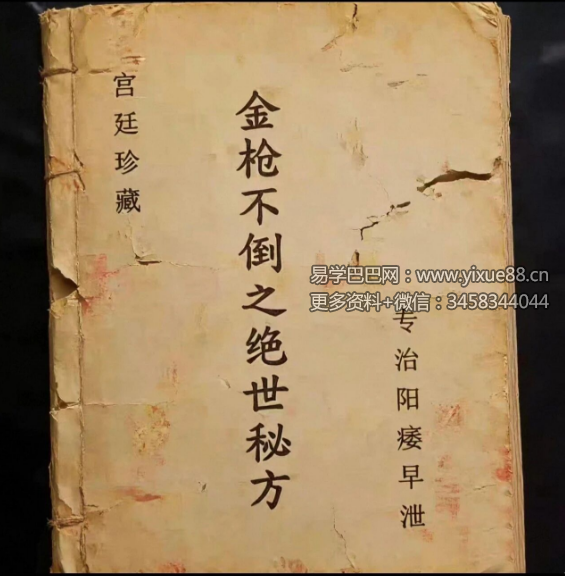 宫廷珍藏
金枪不倒之绝世秘方
专治阳痿早泄
易学巴巴网：www.yixue88.cn
更多资料+微信：3458344044